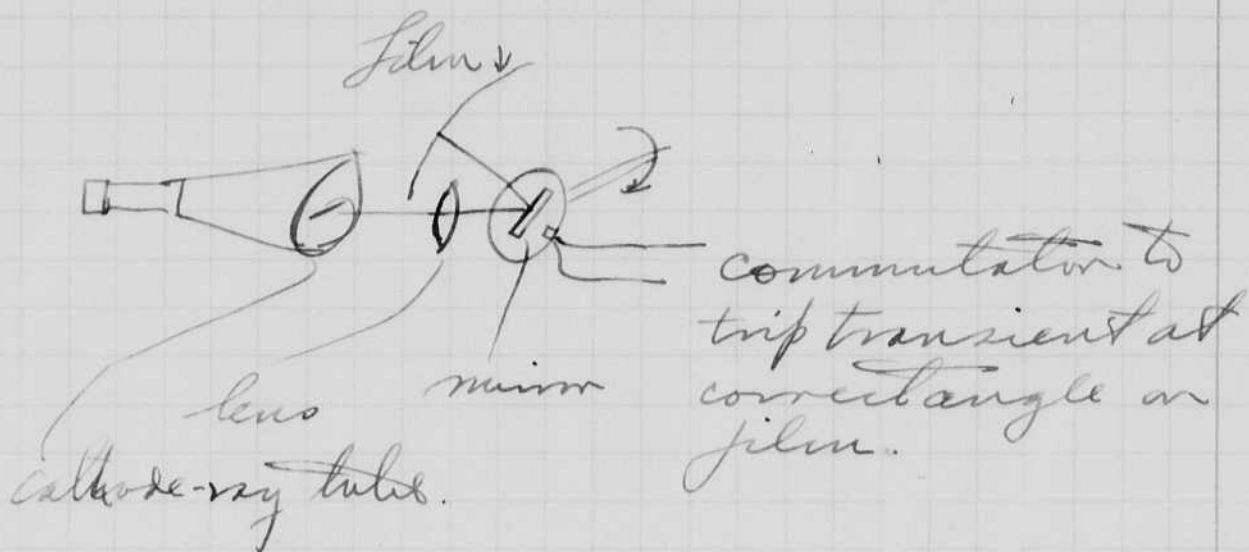 film
commutator to
trip transient at
correct angle on
film.
mirror
lens
cathode-ray tube.